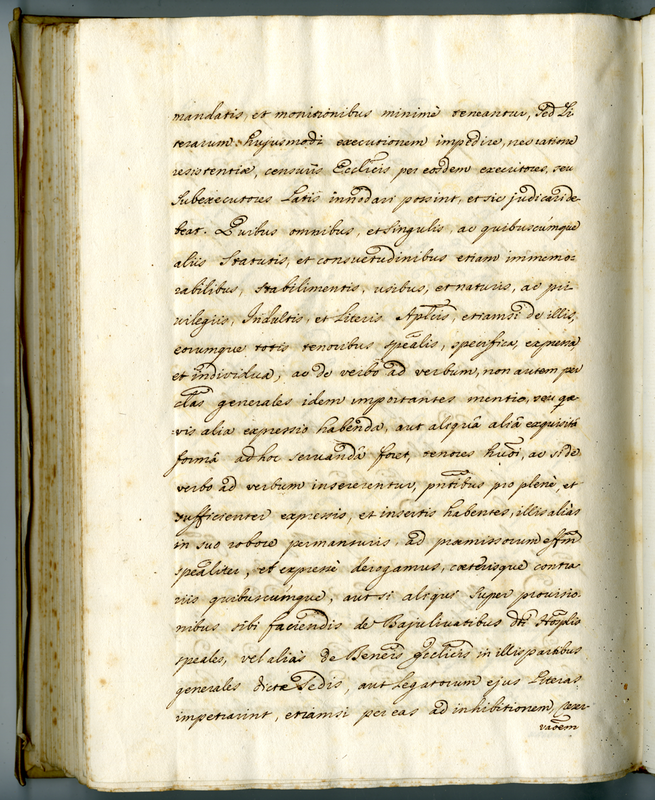 mandatis, et monitionibus minimè teneantur, Sed Li
terarum hujusmodi executionem impedire, nec ratione
resistentiæ, censuris Ecclicis per eosdem executores, seu
Subexecutores Latis innodari possint, et sic judicari de-
beat. Quibus omnibus, et singulis, ac quibuscúmque
aliis Statutis, et consuetudinibus etiam immemo
rabilibus, stabilimentis, usibus, et naturis, ac pri
vilegiis, Indultis, et Literis Aplicis, etiamsi de illis,
eorumque totis tenoribus spēalis, specifica, expressa
et individua, ac de verbo ad verbum, non autem per
clās generales idem importantes mentio, seu quæ
vis alia expressio habenda, aut aliqua alia exquisita
forma ad hoc servanda foret, tenores hmōi, ac si de
verbo ad verbum insererentur, pntibus pro plenè, et
sufficienter expressis, et insertis habentes, illis aliàs
in suo robore permansuris, ad præmissorum effm
spēaliter, et expressè derogamus, cæterisque contra
riis quibuscúmque, aut si aliqui super provisio
nibus sibi faciendis de Bajulivatibus dti Hosplis
speales, vel aliàs de Beneis Ecclicis in illis partibus
generales dictæ Sedis, aut Legatorum ejus Literas
impetrarint, etiamsi per eas ad inhibitionem, reser-
vaōem